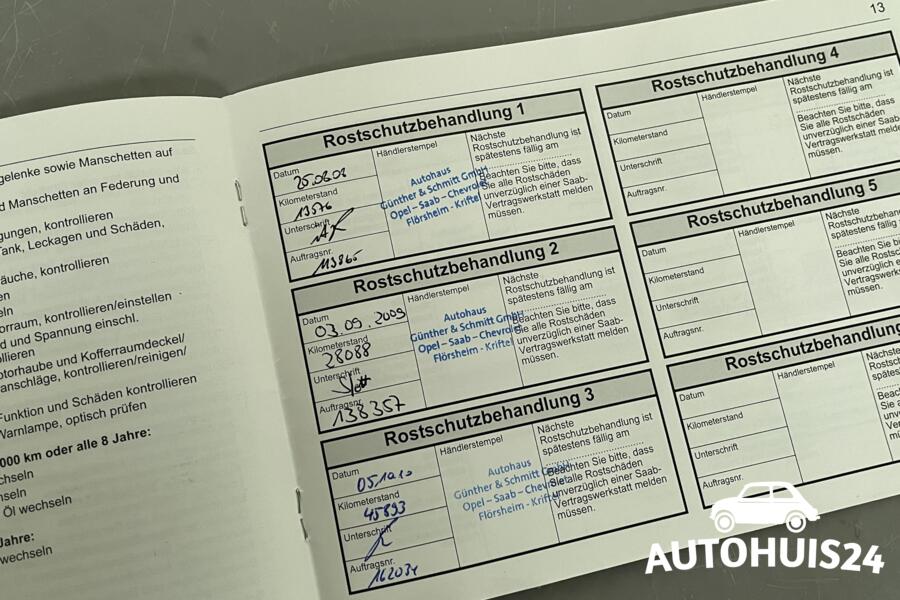 gelenke sowie Manschetten auf
d Manschetten an Federung und
gungen, kontrollieren
Tank, Leckagen und Schäden,
äuche, kontrollieren
en
eln
orraum, kontrollieren/einstellen
d und Spannung einschl.
ollieren
otorhaube und Kofferraumdeckel/
anschläge, kontrollieren/reinigen/
Funktion und Schäden kontrollieren
Warnlampe, optisch prüfen
000 km oder alle 8 Jahre:
chseln
hseln
Öl wechseln
Jahre:
wechseln
13
Rostschutzbehandlung 1
Datum
25.06.08
Kilometerstand
13576
Unterschrift
Auftragsnr.
113865
Händlerstempel
Autohaus
Günther & Schmitt GmbH
Opel – Saab – Chevrolet
Flörsheim - Kriftel
Nächste
Rostschutzbehandlung ist
spätestens fällig am
Beachten Sie bitte, dass
Sie alle Rostschäden
unverzüglich einer Saab-
Vertragswerkstatt melden
müssen.
Rostschutzbehandlung 2
Datum
03.09.2009
Kilometerstand
28088
Unterschrift
Auftragsnr.
138357
Händlerstempel
Autohaus
Günther & Schmitt GmbH
Opel – Saab – Chevrolet
Flörsheim - Kriftel
Nächste
Rostschutzbehandlung ist
spätestens fällig am
Beachten Sie bitte, dass
Sie alle Rostschäden
unverzüglich einer Saab-
Vertragswerkstatt melden
müssen.
Rostschutzbehandlung 3
Datum
05.10.10
Kilometerstand
45893
Unterschrift
Auftragsnr.
162034
Händlerstempel
Autohaus
Günther & Schmitt GmbH
Opel – Saab – Chevrolet
Flörsheim - Kriftel
Nächste
Rostschutzbehandlung ist
spätestens fällig am
Beachten Sie bitte, dass
Sie alle Rostschäden
unverzüglich einer Saab-
Vertragswerkstatt melden
müssen.
Rostschutzbehandlung 4
Datum
Kilometerstand
Unterschrift
Auftragsnr.
Händlerstempel
Nächste
Rostschutzbehandlung ist
spätestens fällig am
Beachten Sie bitte, dass
Sie alle Rostschäden
unverzüglich einer Saab-
Vertragswerkstatt melden
müssen.
Rostschutzbehandlung 5
Datum
Kilometerstand
Unterschrift
Auftragsnr.
Händlerstempel
Nächste
Rostschutzbehandlung
spätestens fällig am
Beachten Sie bitte,
Sie alle Rostschäden
unverzüglich einer
Vertragswerkstatt
müssen.
Rostschutzbehandlung
Datum
Kilometerstand
Unterschrift
Auftragsnr.
Händlerstempel
Nächste
AUTOHUIS24